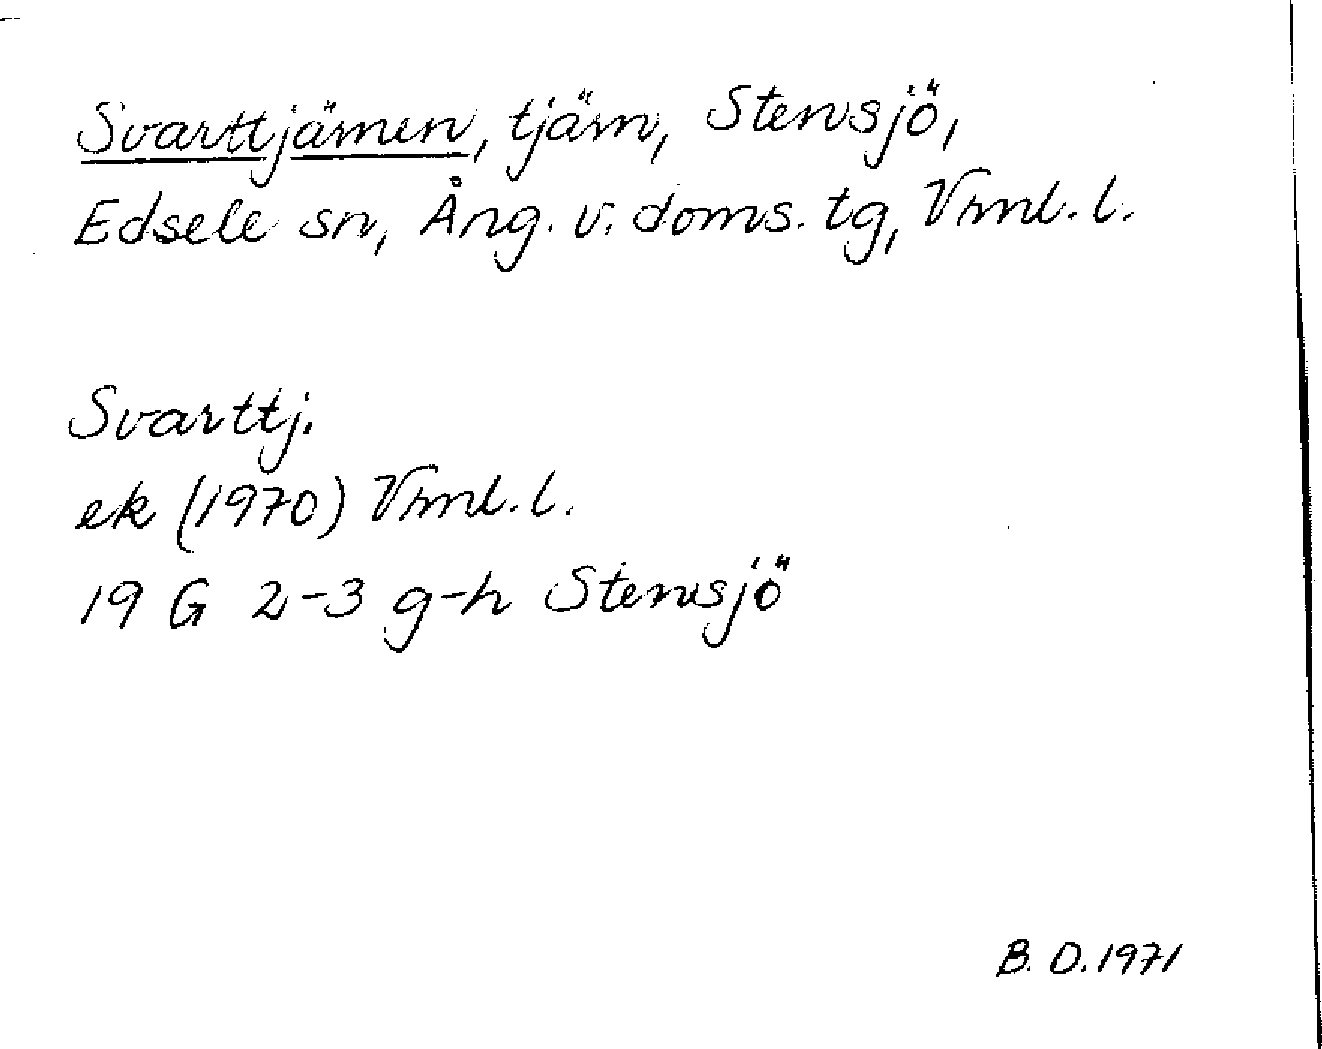 Svarttjärnen, tjärn, Stensjö,
Edsele sn, Ång. v. doms. tg, Vrnl. l.
Svarttj.
ek (1970) Vrnl. l.
19 G 2-3 g-h Stensjö
B. O. 1971